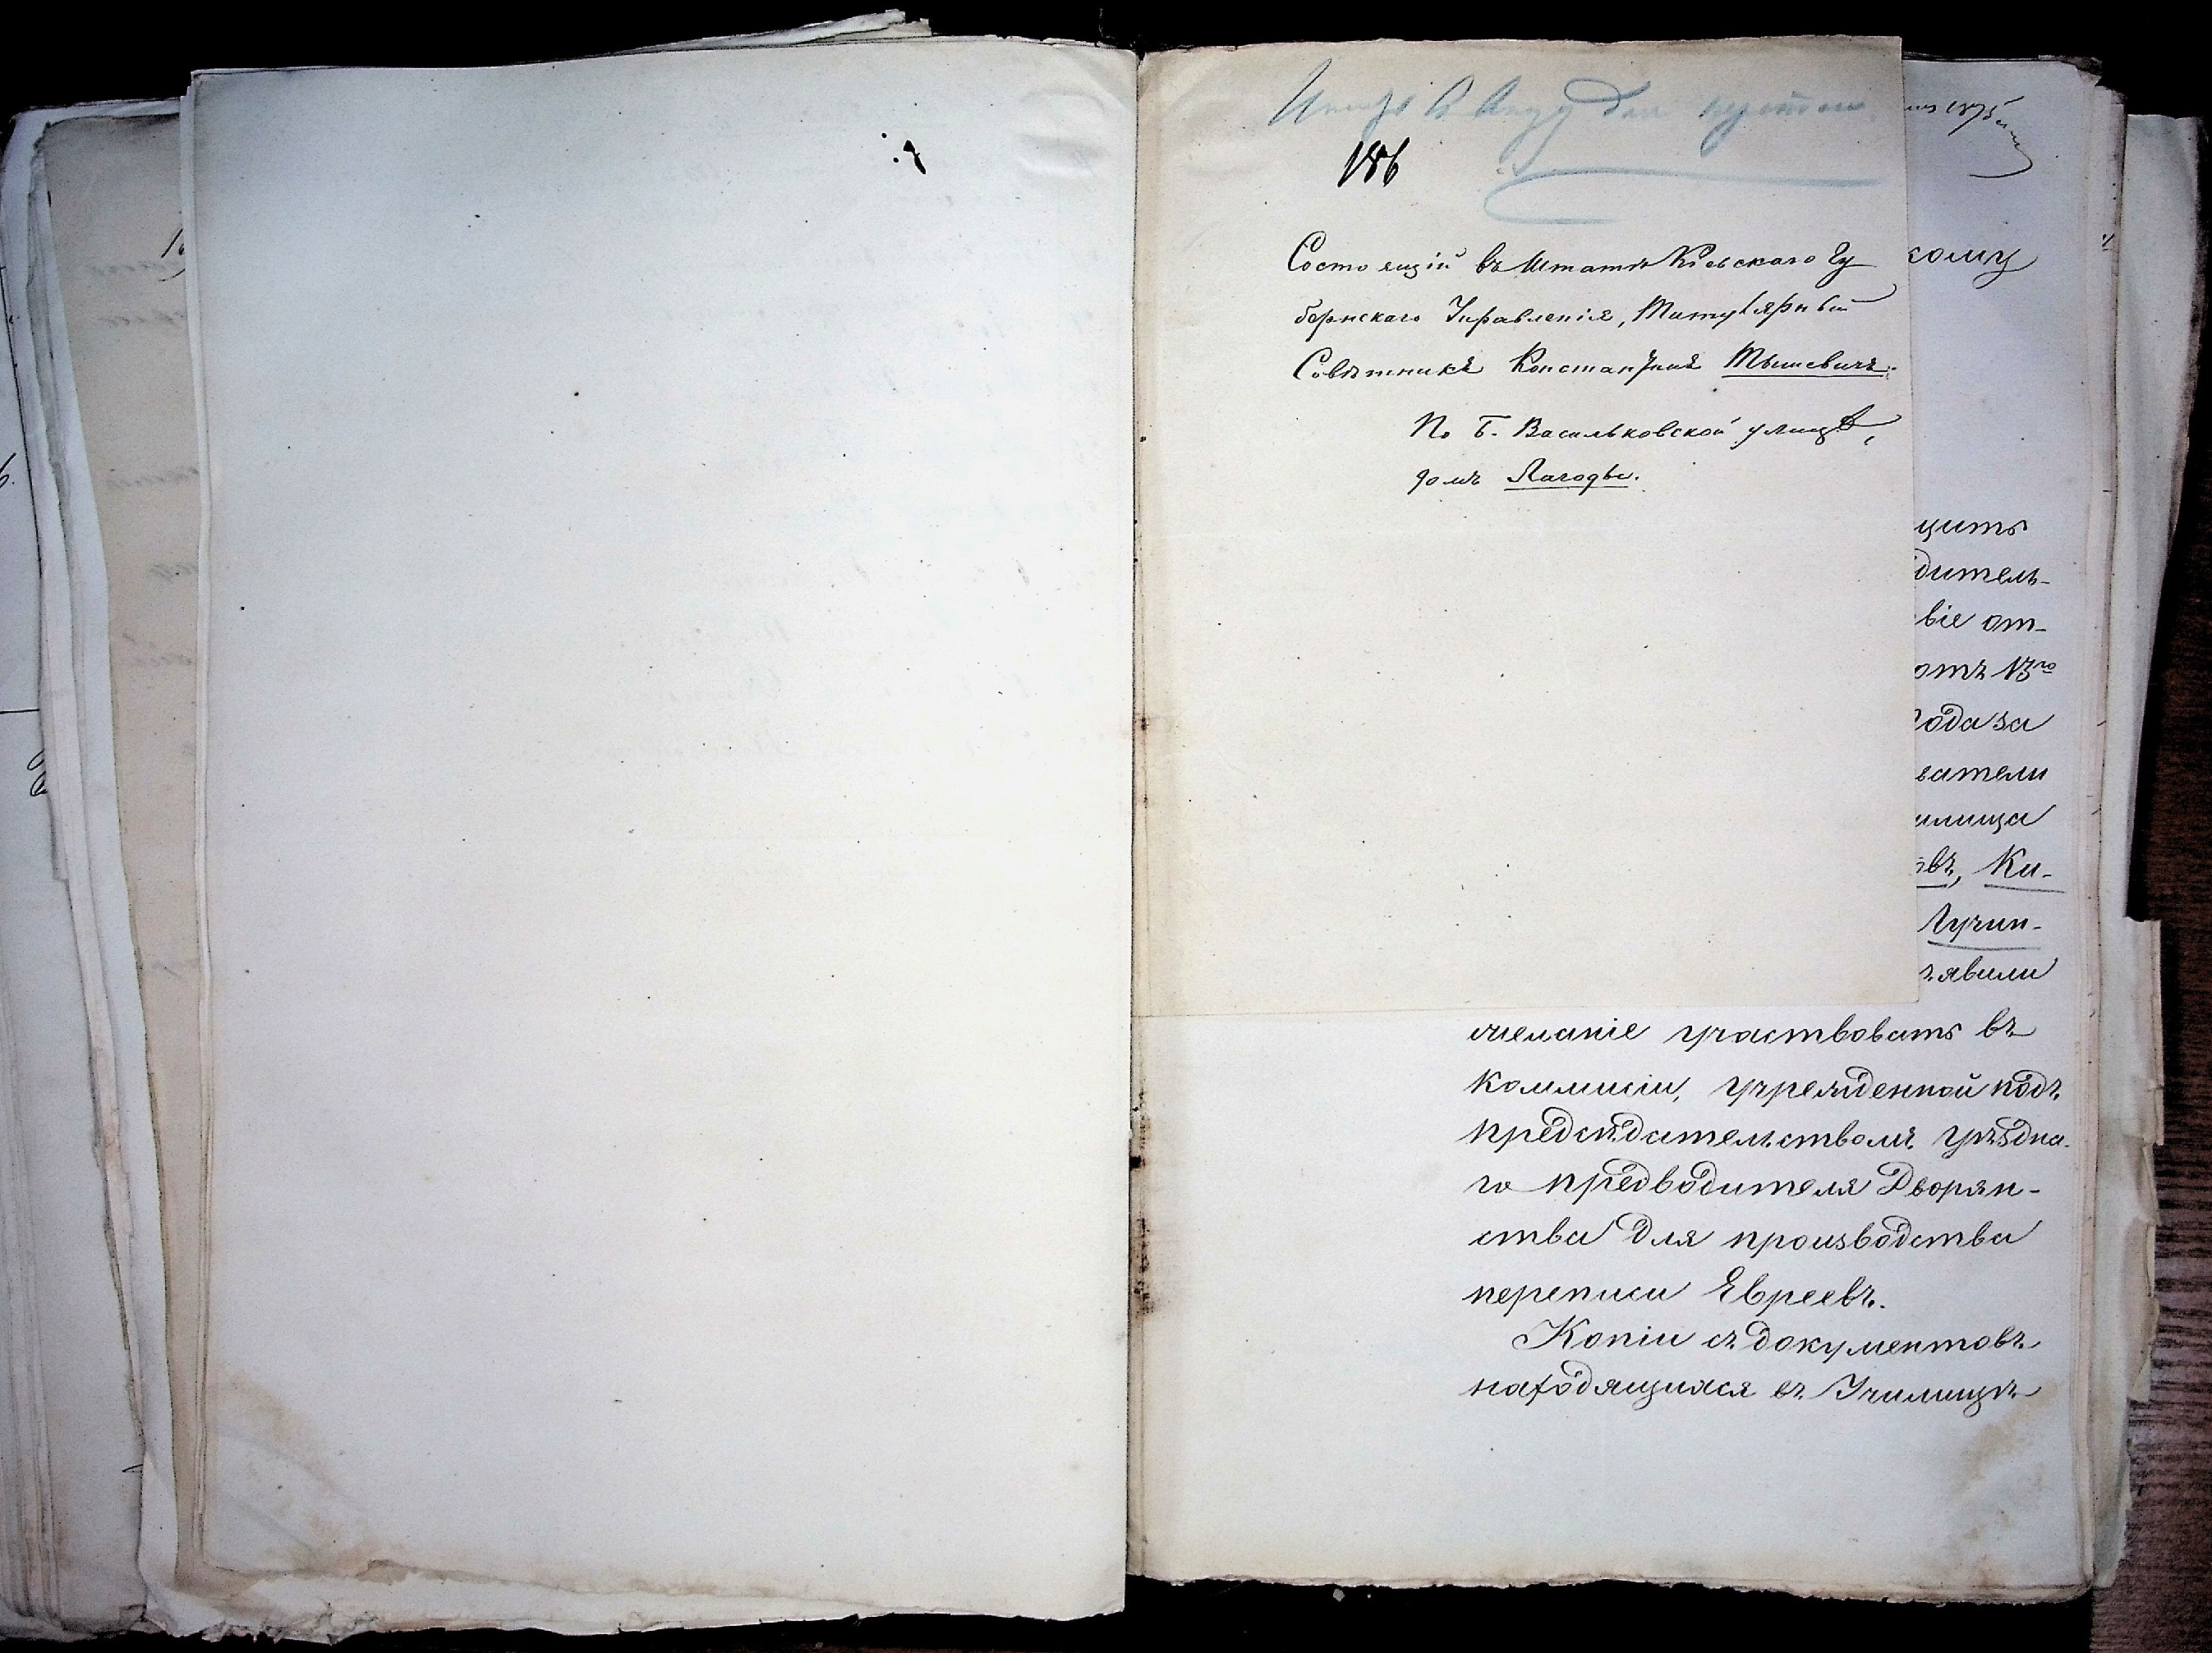 Имѣть въ виду для
186
Состоящій въ Штатѣ Кіевскаго Гу
бернскаго Управленія, Титулярный
Совѣтникъ Константинъ Тышевичъ.
По Б. Васильковской улицѣ,
домъ Лагоды.
1875
кому
щить
дитель-
віе от-
отъ 13го
года за
ватели
илища
овъ, Ки-
Лучин-
ъявили
желаніе участвовать въ
Коммисіи, учрежденной подъ
предсѣдательствомъ уѣздна-
го предводителя Дворян-
ства для производства
переписи Евреевъ.
Копіи съ документовъ
находящихся въ Училищѣ